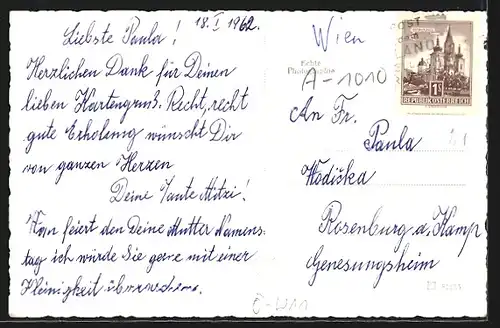 18. I 1962.
Liebste Paula!
Herzlichen Dank für Deinen
lieben Kartengruß. Recht, recht
gute Erholung wünscht Dir
von ganzen Herzen
Deine Tante Mitzi!
Wan feiert den Deine Mutter Namens-
tag ich würde Sie gerne mit einer
Kleinigkeit überraschen.
Wien
A-1010
Echte
Photographie
POST
1S
REPUBLIK ÖSTERREICH
An Fr.
Paula
Wodiska
Rosenburg a. Kamp
Genesungsheim